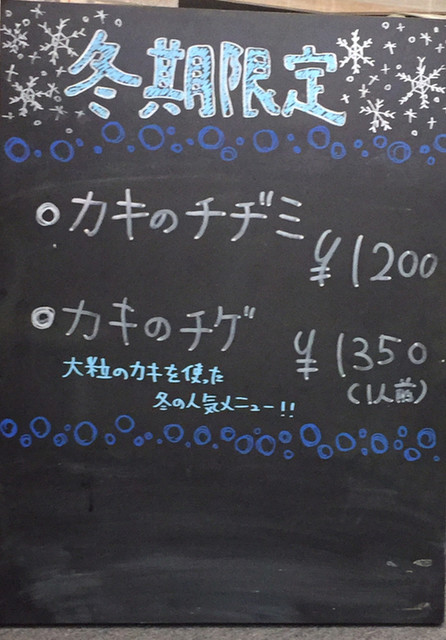 冬期限定
◎カキのチヂミ
¥1200
◎カキのチゲ
¥1350
(1人前)
大粒のカキを使った
冬の人気メニュー!!